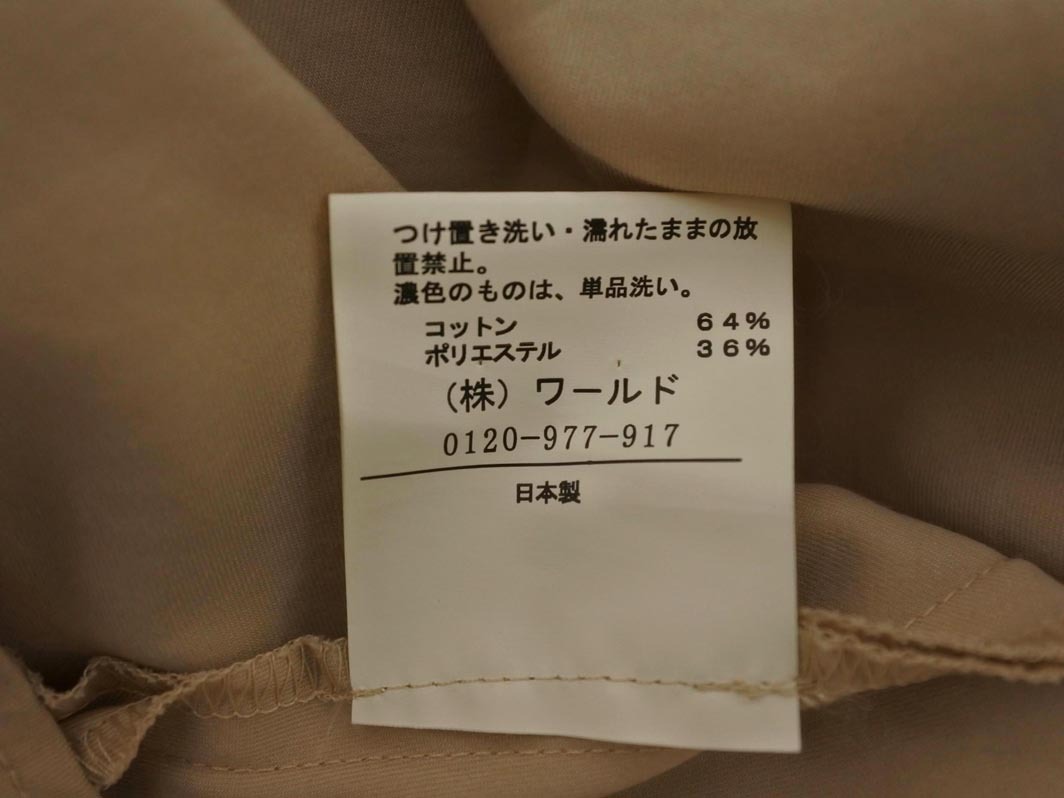 つけ置き洗い・濡れたままの放
置禁止。
濃色のものは、単品洗い。
コットン ６４％
ポリエステル ３６％
（株）ワールド
0120-977-917
日本製